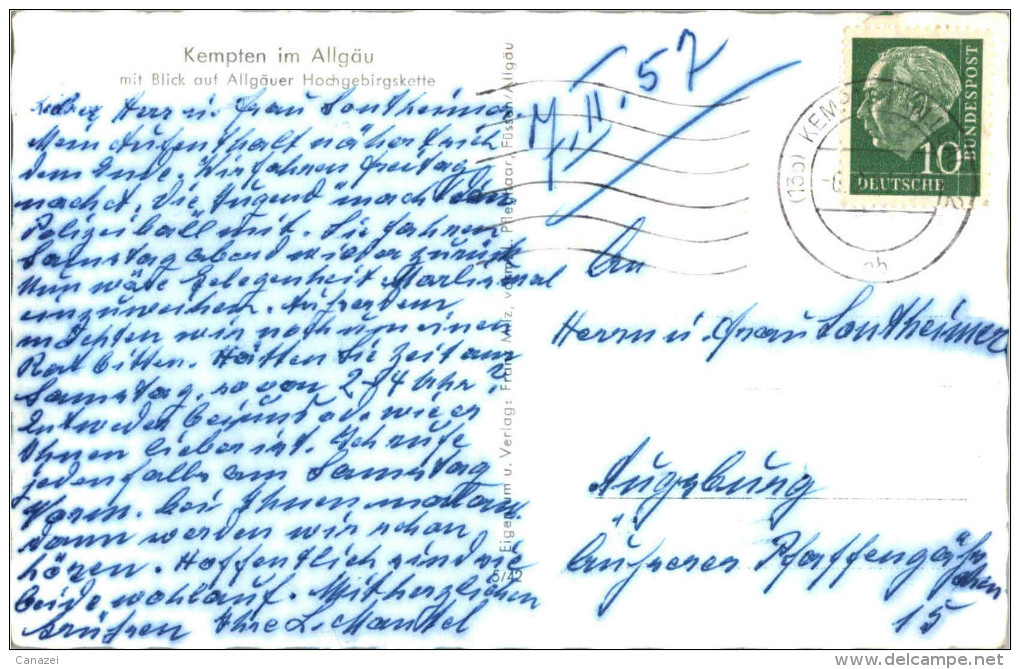 Kempten im Allgäu
mit Blick auf Allgäuer Hochgebirgskette
Herr u. Frau Sontheimer.
Mein Aufenthalt nähert sich
dem Ende. Wir fahren Freitag
nachts, die Jugend macht den
Polizeiball mit. Sie fahren
Samstag abend wieder zurück
Nun wäre Gelegenheit mal
einzuweihen. Außerdem
möchten wir noch um einen
Rat bitten. Hätten Sie Zeit am
Samstag, so von 2-4 Uhr?
Entweder bei uns od. wie es
Ihnen lieber ist. Ich rufe
jedenfalls am Samstag
Vorm. bei Ihnen mal an.
dann werden wir schon
hören. Hoffentlich sind Sie
beide wohlauf. Mit herzlichen
Grüßen Ihre L. Mantel
Eigentum u. Verlag: Franz Milz, vorm. Pfleghaar, Füssen/Allgäu
5/42
II. 57
(13b) KEMPTEN
BUNDESPOST
10
DEUTSCHE
An
Herrn u. Frau Sontheimer
Augsburg
Äußeres Pfaffengäßchen
15
Canazei
www.delcampe.net